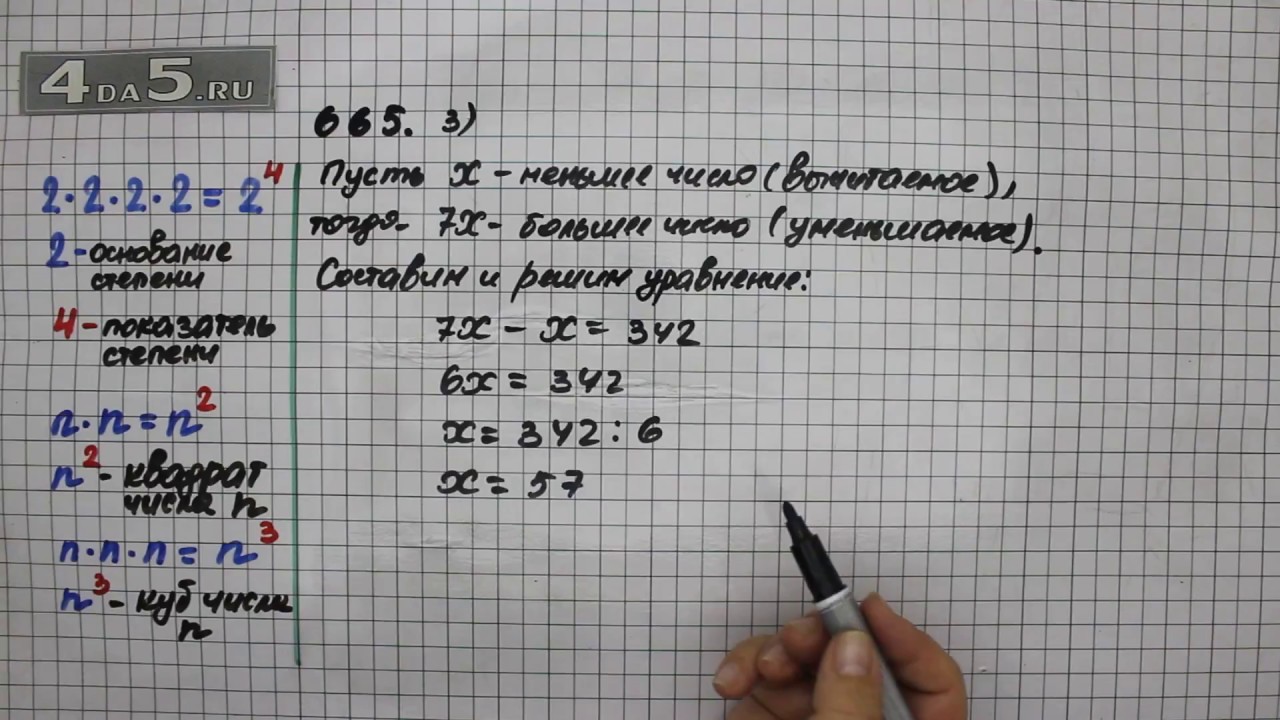 4DA5.RU
2·2·2·2=2⁴
2-основание
степени
4-показатель
степени
n·n=n²
n²-квадрат
числа n
n·n·n=n³
n³-куб числа
n
665. 3)
Пусть x - меньшее число (вычитаемое),
тогда 7x - большее число (уменьшаемое).
Составим и решим уравнение:
7x - x = 342
6x = 342
x = 342 : 6
x = 57